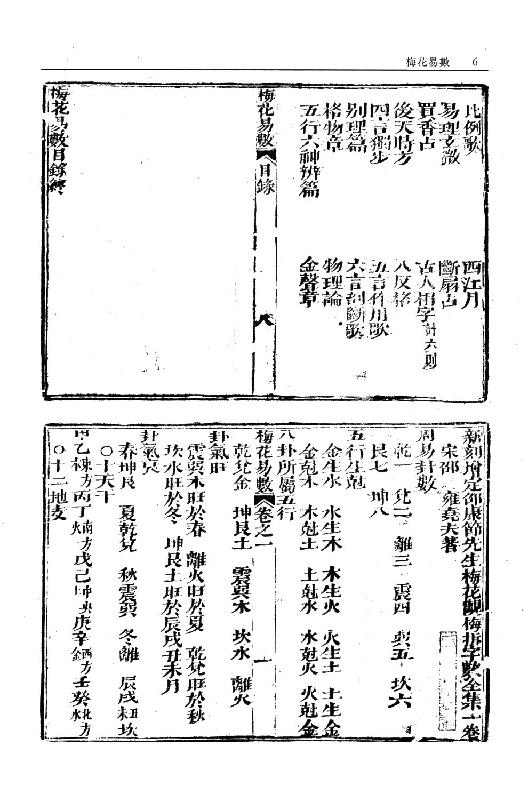 梅花易數 6
比例歌 西江月
易理玄微 斷扇占
買香占 古人相字計六則
後天時方 八反格
四言獨步 五言作用歌
别理篇 六言剖斷歌
格物章 物理論
五行六神辨篇 金聲章
梅花易數 目錄 八
梅花易數目錄終
新刻增定邵康節先生梅花觀梅拆字數全集一卷
宋邵 雍堯夫著
周易卦數
乾一 兌二 離三 震四 巽五 坎六
艮七 坤八
五行生剋
金生水 水生木 木生火 火生土 土生金
金剋木 木剋土 土剋水 水剋火 火剋金
八卦所屬五行
梅花易數 卷之一 一
乾兌金 坤艮土 震巽木 坎水 離火
卦氣旺
震巽木旺於春 離火旺於夏 乾兌旺於秋
坎水旺於冬 坤艮土旺於辰戌丑未月
卦氣衰
春坤艮 夏乾兌 秋震巽 冬離 辰戌丑未坎
○十天干
甲乙東方木 丙丁南方火 戊己中央土 庚辛西方金 壬癸北方水
○十二地支